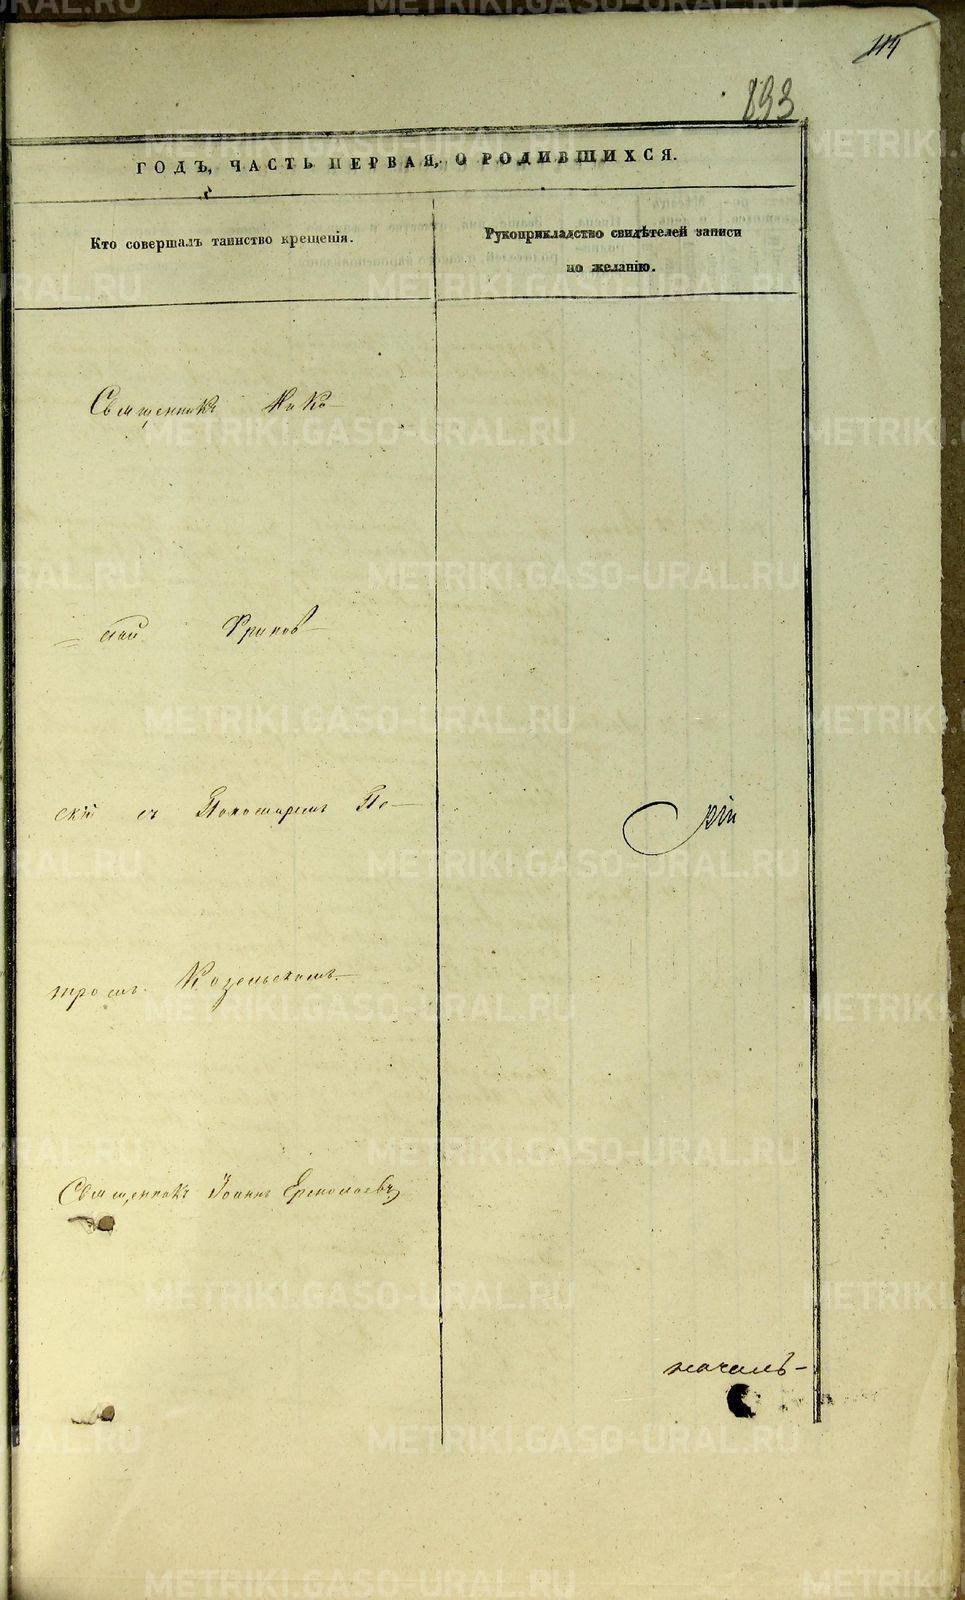 114
893
ГОДЪ, ЧАСТЬ ПЕРВАЯ, О РОДИВШИХСЯ.
Кто совершалъ таинство крещенія.
Рукоприкладство свидѣтелей записи
по желанію.
Священникъ Нико-
лай
скій съ Пономаремъ Пе-
тромъ Козельскимъ.
Священникъ Іоаннъ
METRIKI.GASO-URAL.RU